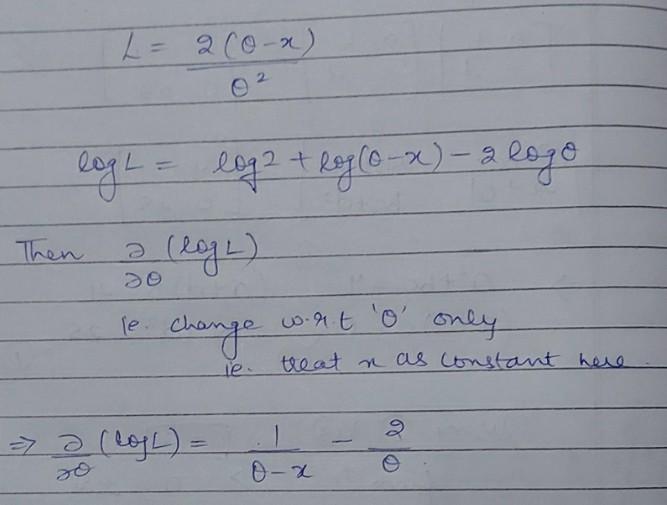 L = 2(θ-x) / θ²
log L = log2 + log(θ-x) - 2 logθ
Then ∂/∂θ (log L)
ie. change w.r.t 'θ' only
ie. treat x as constant here.
⇒ ∂/∂θ (log L) = 1/(θ-x) - 2/θ